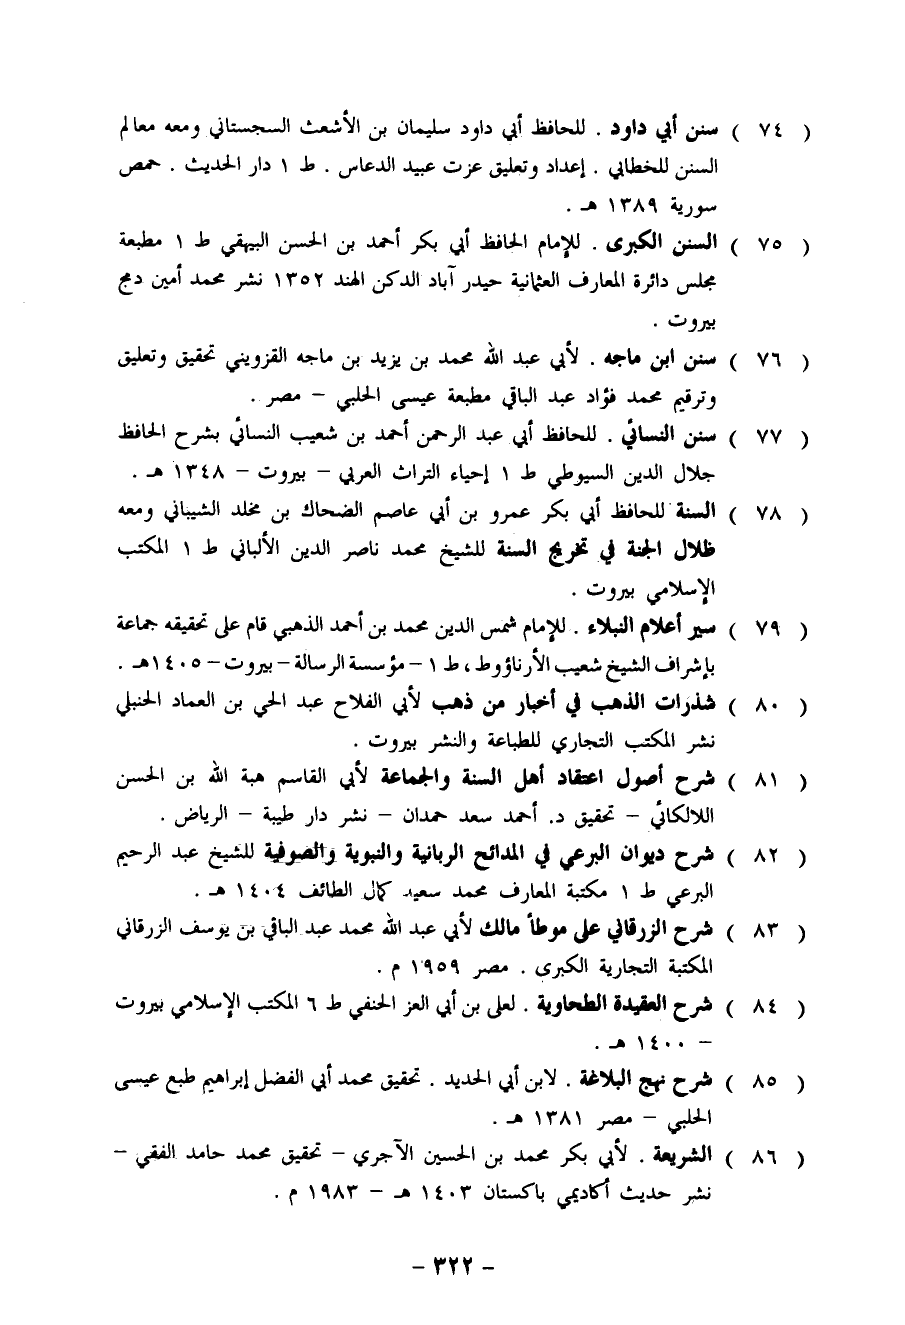 ( ٧٤ ) سنن أبي داود . للحافظ أبي داود سليمان بن الأشعث السجستاني ومعه معالم
السنن للخطابي . إعداد وتعليق عزت عبيد الدعاس . ط ١ دار الحديث . حمص
سورية ١٣٨٩ هـ .
( ٧٥ ) السنن الكبرى . للإمام الحافظ أبي بكر أحمد بن الحسن البيهقي ط ١ مطبعة
مجلس دائرة المعارف العثمانية حيدر آباد الدكن الهند ١٣٥٢ نشر محمد أمين دمج
بيروت .
( ٧٦ ) سنن ابن ماجه . لأبي عبد الله محمد بن يزيد بن ماجه القزويني تحقيق وتعليق
وترقيم محمد فؤاد عبد الباقي مطبعة عيسى الحلبي – مصر .
( ٧٧ ) سنن النسائي . للحافظ أبي عبد الرحمن أحمد بن شعيب النسائي بشرح الحافظ
جلال الدين السيوطي ط ١ إحياء التراث العربي – بيروت – ١٣٤٨ هـ .
( ٧٨ ) السنة للحافظ أبي بكر عمرو بن أبي عاصم الضحاك بن مخلد الشيباني ومعه
ظلال الجنة في تخريج السنة للشيخ محمد ناصر الدين الألباني ط ١ المكتب
الإسلامي بيروت .
( ٧٩ ) سير أعلام النبلاء . للإمام شمس الدين محمد بن أحمد الذهبي قام على تحقيقه جماعة
بإشراف الشيخ شعيب الأرناؤوط ، ط ١ – مؤسسة الرسالة – بيروت – ١٤٠٥هـ .
( ٨٠ ) شذرات الذهب في أخبار من ذهب لأبي الفلاح عبد الحي بن العماد الحنبلي
نشر المكتب التجاري للطباعة والنشر بيروت .
( ٨١ ) شرح أصول اعتقاد أهل السنة والجماعة لأبي القاسم هبة الله بن الحسن
اللالكائي – تحقيق د. أحمد سعد حمدان – نشر دار طيبة – الرياض .
( ٨٢ ) شرح ديوان البرعي في المدائح الربانية والنبوية والصوفية للشيخ عبد الرحيم
البرعي ط ١ مكتبة المعارف محمد سعيد كمال الطائف ١٤٠٤ هـ .
( ٨٣ ) شرح الزرقاني على موطأ مالك لأبي عبد الله محمد عبد الباقي بن يوسف الزرقاني
المكتبة التجارية الكبرى . مصر ١٩٥٩ م .
( ٨٤ ) شرح العقيدة الطحاوية . لعلى بن أبي العز الحنفي ط ٦ المكتب الإسلامي بيروت
– ١٤٠٠ هـ .
( ٨٥ ) شرح نهج البلاغة . لابن أبي الحديد . تحقيق محمد أبي الفضل إبراهيم طبع عيسى
الحلبي – مصر ١٣٨١ هـ .
( ٨٦ ) الشريعة . لأبي بكر محمد بن الحسين الآجري – تحقيق محمد حامد الفقي –
نشر حديث أكاديمي باكستان ١٤٠٣ هـ – ١٩٨٣ م .
– ٣٢٢ –